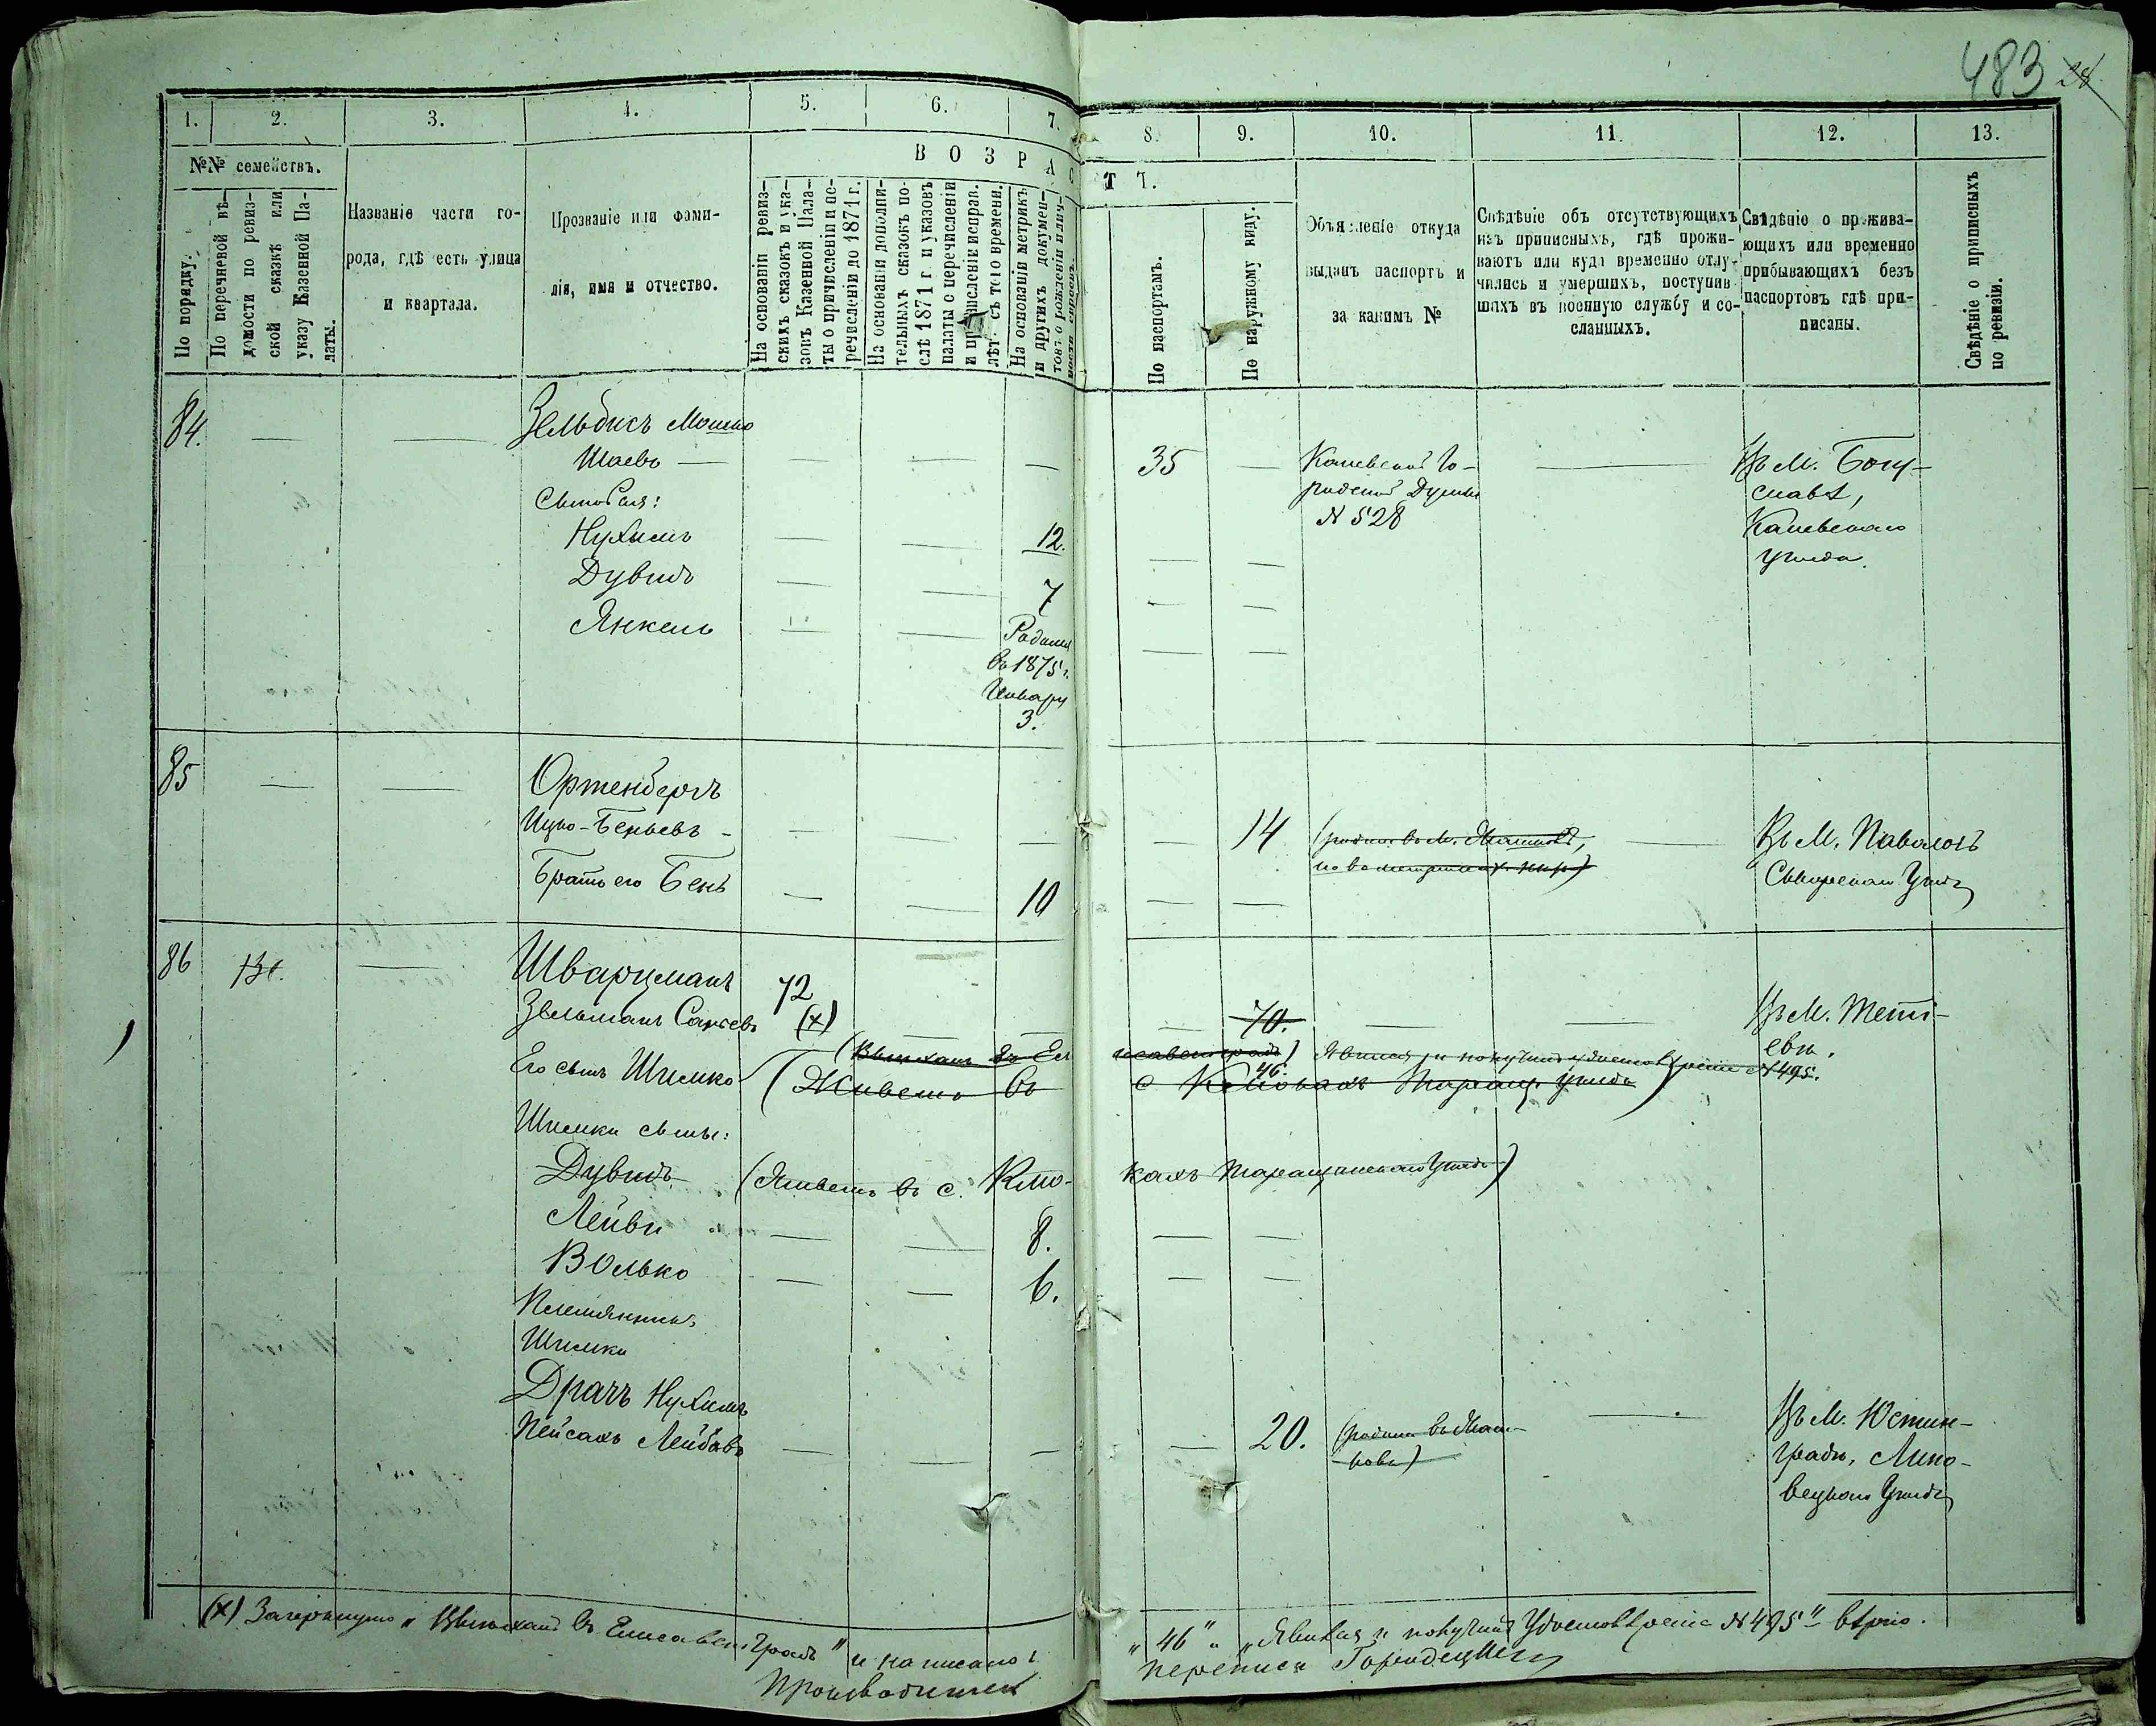 483 28
1. 2. 3. 4. 5. 6. 7. 8. 9. 10. 11. 12. 13.
№№ семействъ.
В О З Р А С Т Ъ.
По порядку.
По перечневой вѣ-
домости по ревиз-
ской сказкѣ или
указу Казенной Па-
латы.
Названіе части го-
рода, гдѣ есть улица
и квартала.
Прозваніе или фами-
лія, имя и отчество.
На основаніи ревиз-
скихъ сказокъ и ука-
зовъ Казенной Пала-
ты о причисленіи и пе-
речисленіи до 1871 г.
На основаніи дополни-
тельныхъ сказокъ по-
слѣ 1871 г. и указовъ
палаты о перечисленіи
и причисленіе исправ.
лѣт. съ того времени.
На основаніи метрикъ
и другихъ докумен-
товъ о рожденіи
По паспортамъ.
По наружному виду.
Объясненіе откуда
выданъ паспортъ и
за какимъ №
Свѣдѣніе объ отсутствующихъ
изъ приписныхъ, гдѣ прожи-
ваютъ или куда временно отлу-
чились и умершихъ, поступив-
шихъ въ военную службу и со-
сланныхъ.
Свѣдѣніе о прожива-
ющихъ или временно
прибывающихъ безъ
паспортовъ гдѣ при-
писаны.
Свѣдѣніе о приписныхъ
по ревизіи.
84. — — Зельбисъ Мошко
Шаевъ — — — — 35 — Каневской Го-
родской Думы
N 528
— Въ М. Богу-
славѣ,
Каневскаго
уѣзда.
Сыновья:
Нухимъ — — 12. — —
Дувидъ — — 7 — —
Янкель — — Родился
въ 1875 г.
Января
3.
— —
85 — — Ортенбергъ
Ицко-Беньевъ — — — — — 14 (родил. въ М.
— Въ М. Паволочь
Сквирскаго Уѣзда
Братъ его Бень — — 10 — —
86 131. — Шварцманъ
Зельманъ 72
(х) — — — 70. — — Въ М. Теті-
евѣ.
Его сынъ Шимко (Выѣхалъ въ Ели
исаветградъ) Явился и получилъ удостовѣреніе N 495.
(Живетъ въ
с. 46. Таращ. уѣзда)
Шимки сыны:
Дувидъ (Живетъ въ с. Клю-
кахъ Таращанскаго Уѣзда)
Лейба — — 8. — —
Волько — — 6. — —
Племянникъ
Шимки
Драчъ Нухимъ
Пейсахъ Лейбовъ — — — — 20. (родил. въ
— Въ М. Юстин-
градъ, Липо-
вецкаго Уѣзда
(х) Зачеркнуто „Выѣхалъ въ Елисаветградъ" и написано:
„46" и „Явился и получилъ Удостовѣреніе N 495" вѣрно.
Производитель
переписи Городецкій